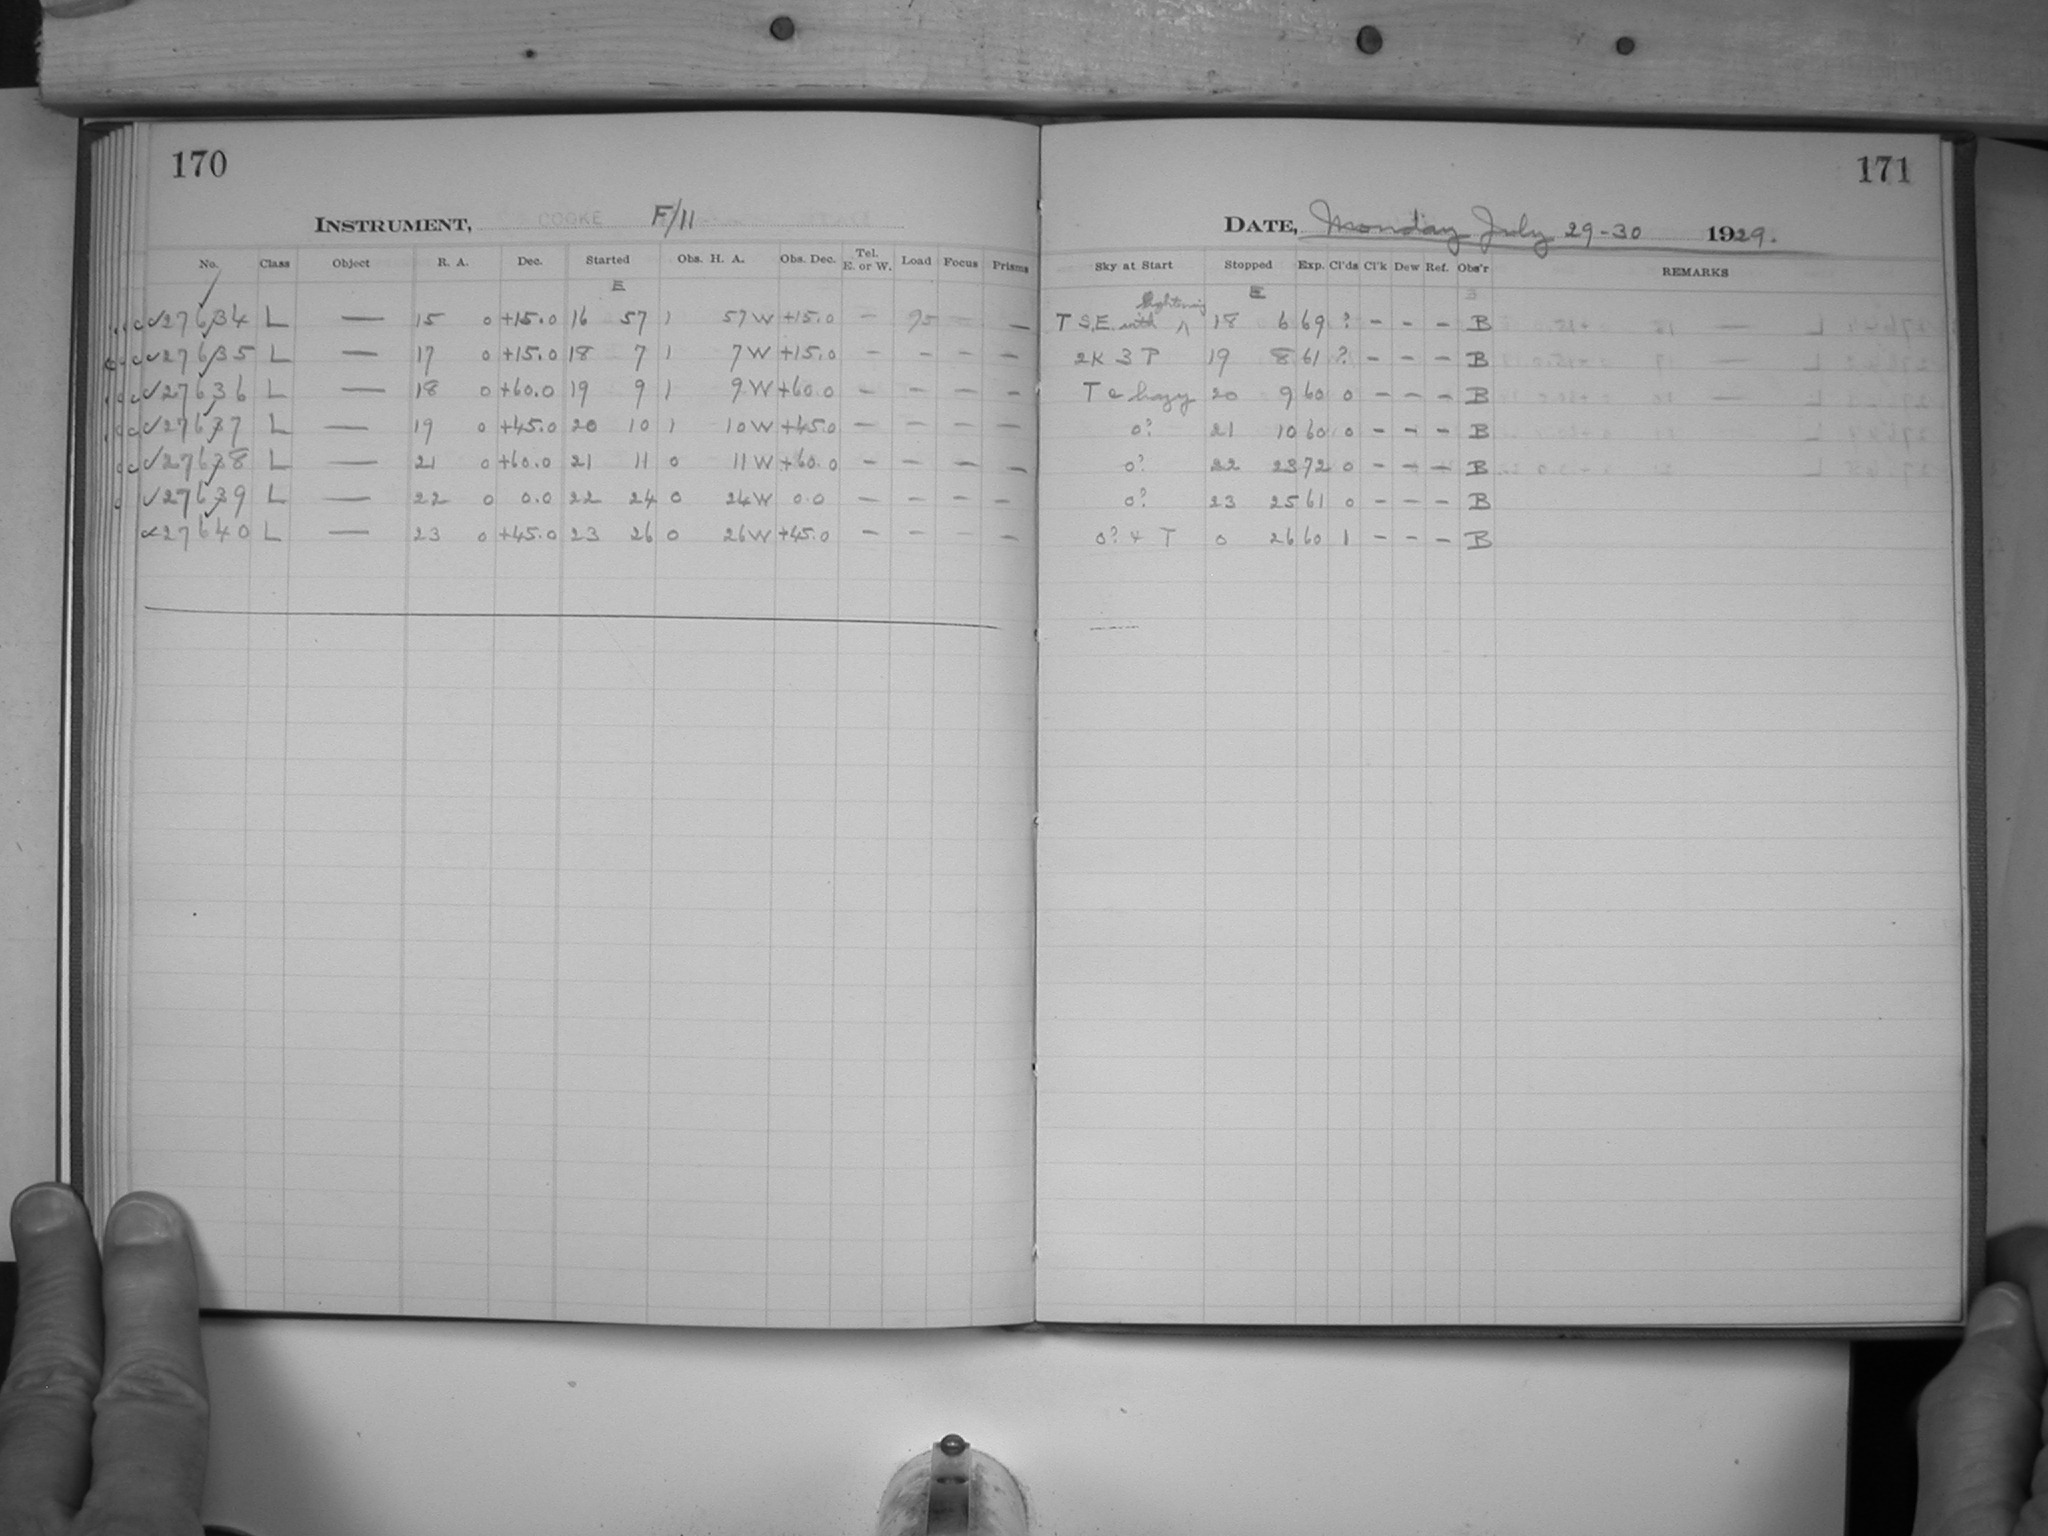 170
INSTRUMENT, COOKE F/11
No. Class Object R. A. Dec. Started Obs. H. A. Obs. Dec. Tel. E. or W. Load Focus Prisms
E
✓27634 L — 15 0 +15.0 16 57 1 57W +15.0 — 95 —
✓27635 L — 17 0 +15.0 18 7 1 7W +15.0 — — — —
✓27636 L — 18 0 +60.0 19 9 1 9W +60.0 — — — —
✓27637 L — 19 0 +45.0 20 10 1 10W +45.0 — — — —
✓27638 L — 21 0 +60.0 21 11 0 11W +60.0 — — — —
✓27639 L — 22 0 0.0 22 24 0 24W 0.0 — — — —
27640 L — 23 0 +45.0 23 26 0 26W +45.0 — — — —
171
DATE, Monday July 29-30 1929.
Sky at Start Stopped Exp. Cl'ds Cl'k Dew Ref. Obs'r REMARKS
E
lightning
T S.E. with ^ 18 6 69 ? — — — B
2K 3 P 19 8 61 ? — — — B
T c hazy 20 9 60 0 — — — B
0? 21 10 60 0 — — — B
0? 22 23 72 0 — — — B
0? 23 25 61 0 — — — B
0? + T 0 26 60 1 — — — B